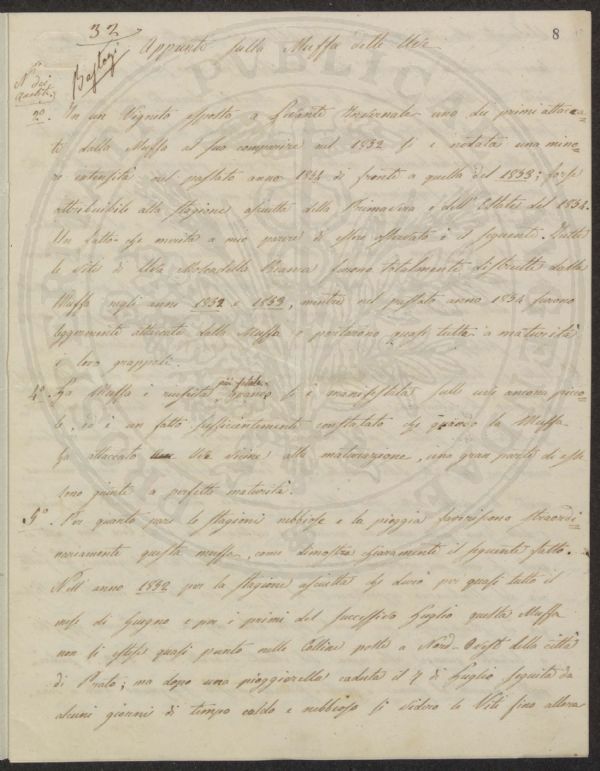 32
8
Appunti sulla Muffa delle Uve
Bastogi
N.o dei Quesiti
2.o In un Vigneto esposto a Levante Invernale uno dei primi attacca-
ti dalla Muffa al suo comparire nel 1852 si è notata una mino-
re intensità nel passato anno 1854 di fronte a quella del 1853; forse
attribuibile alla stagione asciutta della Primavera e dell'Estate del 1854.
Un fatto che merita a mio parere di essere osservato è il seguente. Tutte
le viti di Uva Moscadella Bianca furono totalmente distrutte dalla
Muffa negli anni 1852 e 1853, mentre nel passato anno 1854 furono
leggermente attaccate dalla Muffa e portarono quasi tutte a maturità
i loro grappoli.
4.o La Muffa è riuscita più fatale quando si è manifestata sulle uve ancora picco-
le, ed è un fatto sufficientemente constatato che quando la Muffa
ha attaccato Uve vicine alla maturazione, una gran parte di esse
sono giunte a perfetta maturità.
5.o Per quanto pare le stagioni nebbiose e la pioggia favoriscono straordi-
nariamente questa muffa, come dimostra chiaramente il seguente fatto.
Nell'anno 1852 per la stagione asciutta che durò per quasi tutto il
mese di Giugno e per i primi del successivo Luglio questa Muffa
non si estese quasi punto nelle Colline poste a Nord-Ovest della città
di Prato; ma dopo una pioggiarella caduta il 7 di Luglio seguita da
alcuni giorni di tempo caldo e nebbioso si videro le Viti fino allora